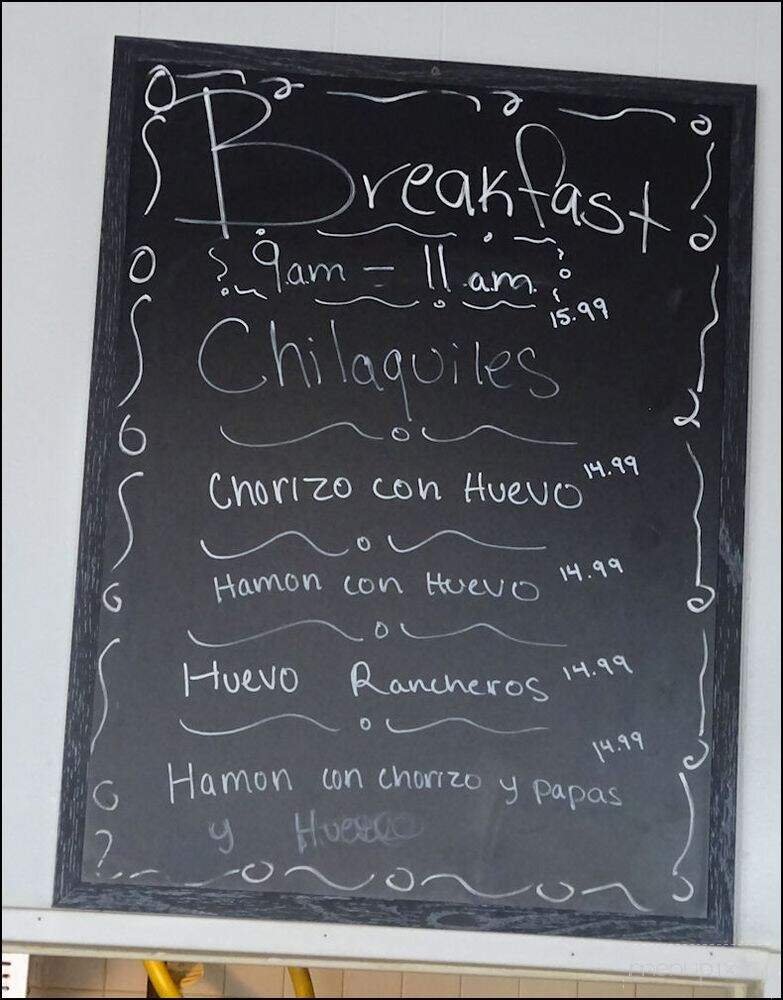 Breakfast
9a.m - 11 a.m.
15.99
Chilaquiles
Chorizo con Huevo 14.99
Hamon con Huevo 14.99
Huevo Rancheros 14.99
14.99
Hamon con chorizo y papas
y Huevo